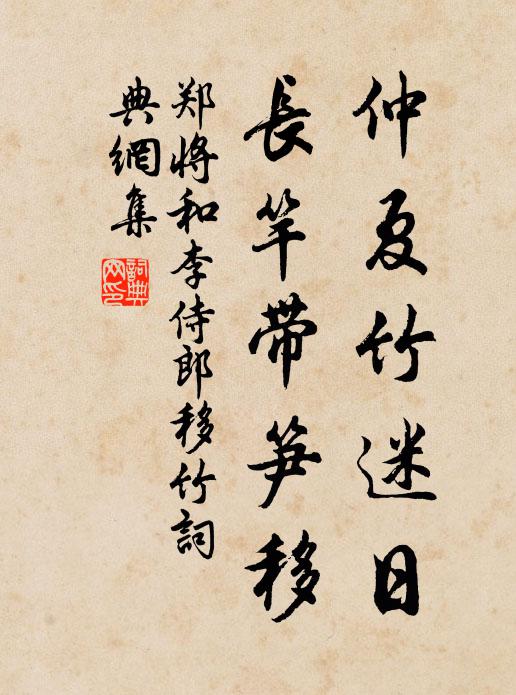 仲夏竹迷日
長竿帶笋移
郑將和李侍郎移竹詞
典網集
詞典网印